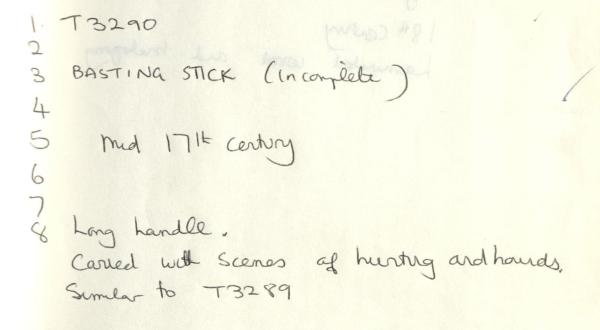 1. T3290
2
3 BASTING STICK (incomplete)
4
5 Mid 17th century
6
7
8 Long handle.
Carved with scenes of hunting and hounds.
Similar to T3289